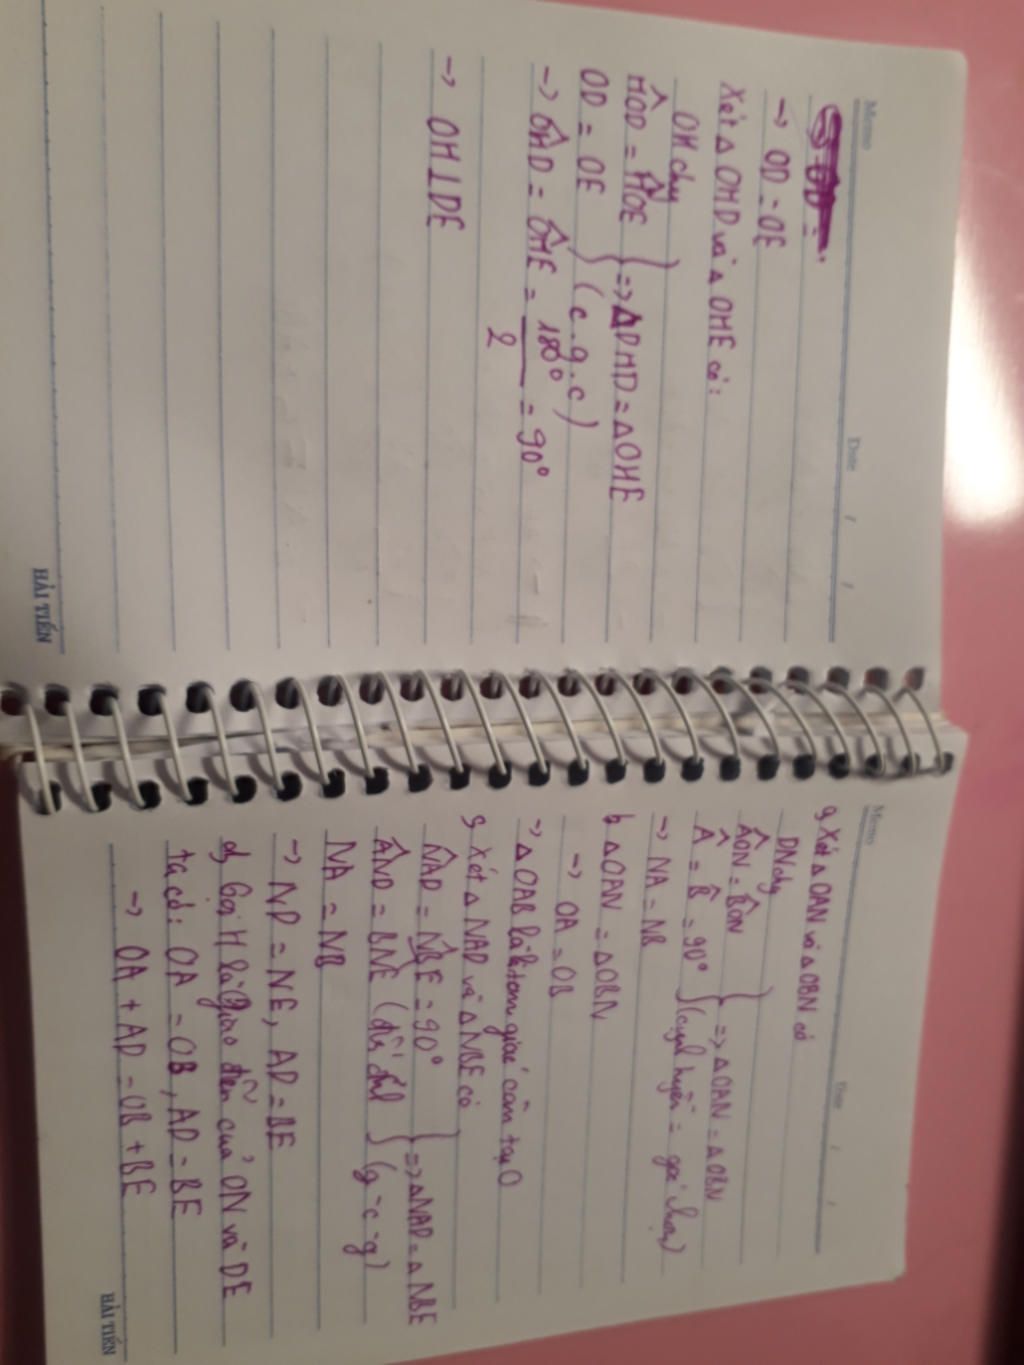 Memo Date / /
→ OD = OE
Xét △ OHD và △ OHE có:
OH chung
HÔD = HÔE } => △DHD = △OHE
OD = OE } (c.g.c)
→ OĤD = OĤE = 180° / 2 = 90°
→ OH ⊥ DE
HẢI TIẾN
Memo Date / /
a, Xét △ OAN và △ OBN có
DN chg
AÔN = BÔN } => △OAN = △OBN
Â = B̂ = 90° } (cạnh huyền = góc nhọn)
→ NA = NB
b, △OAN = △OBN
→ OA = OB
→ △OAB là tam giác cân tại O
c, Xét △ NAD và △NBE có
NÂD = NB̂E = 90° } => △NAD = △NBE
AN̂D = BN̂E (đối đỉnh) } (g-c-g)
NA = NB
→ ND = NE, AD = BE
d, Gọi H là giao điểm của ON và DE
ta có: OA = OB, AD = BE
→ OA + AD = OB + BE
HẢI TIẾN